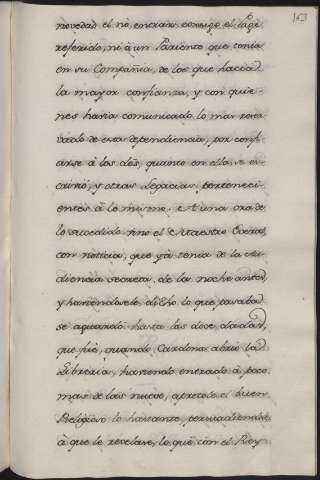 163
novedad el no encrar consigo el Papel
referido, ni à un Pariente que tenia
en su Compañia, de los que hacia
la mayor confianza, y con quie-
nes havia comunicado lo mas reser-
vado de esta dependiencia, por confi-
arse à los dos, quanto en ella se es-
crivió, y otras legacias perteneci-
entes à lo mismo. A una ora de
lo sucedido vino el Maestro
con noticia, que yà tenia de la Au-
diencia secreta de la noche antes,
y haviendosele dicho lo que pasaba
se aguardò hasta las doce dadas,
que fue, quando Cardona abriò la
Libreria, haviendo entrado à poco
mas de las nueve, apretole el buen
Religioso lo bastante, persuadiendole
à que le revelase, lo que con el Rey